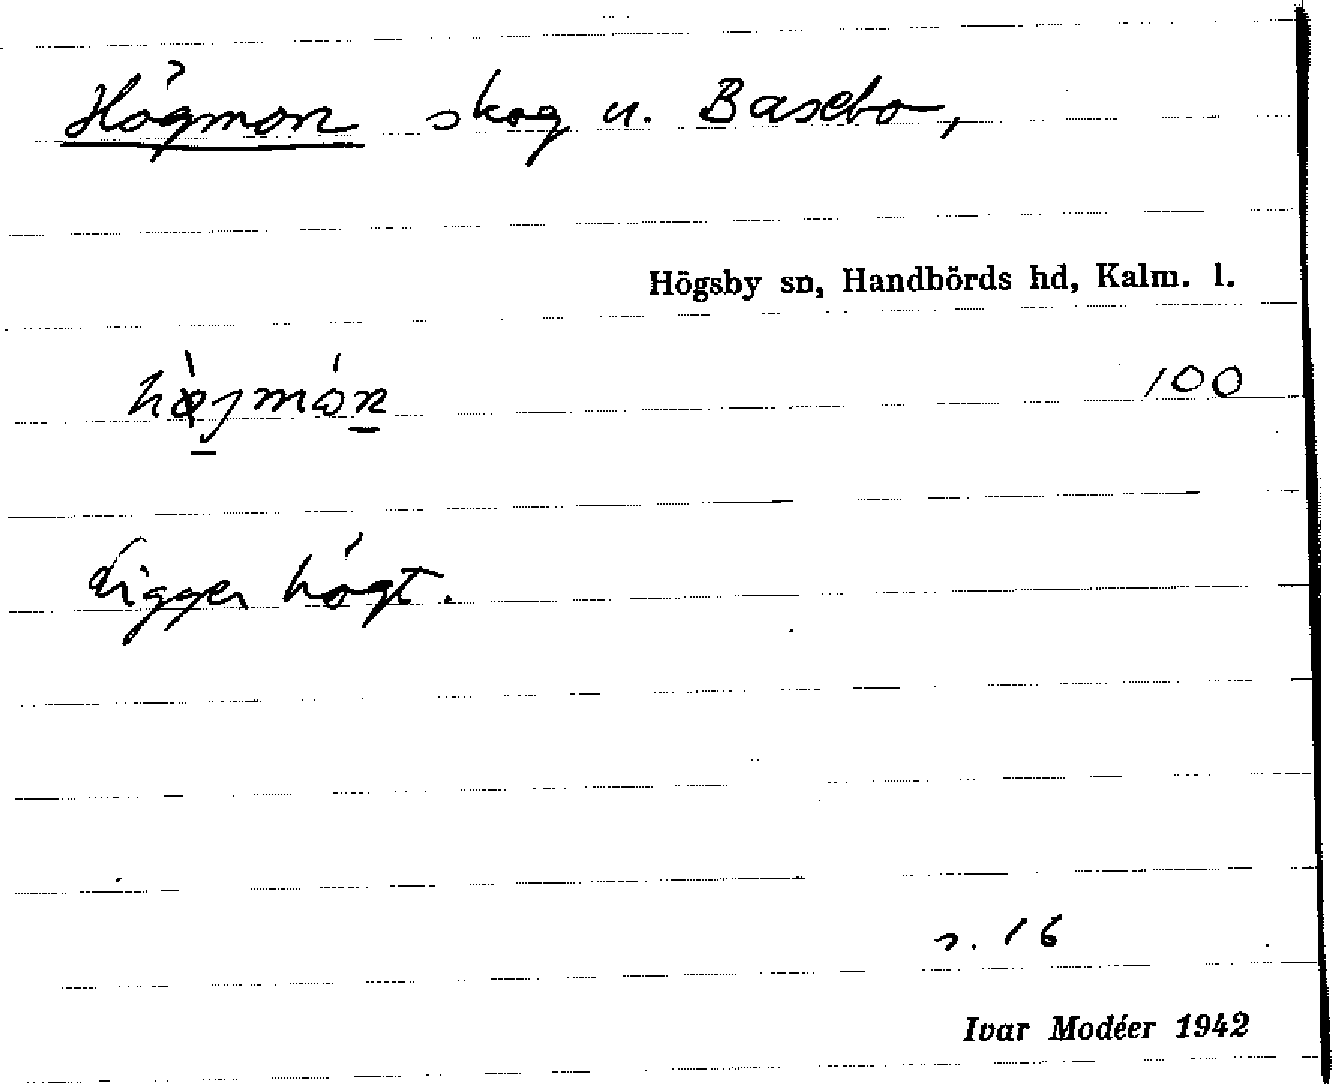 Högmon skog u. Basebo,
Högsby sn, Handbörds hd, Kalm. l.
hø̀jmón 100
Ligger högt.
s. 16
Ivar Modéer 1942